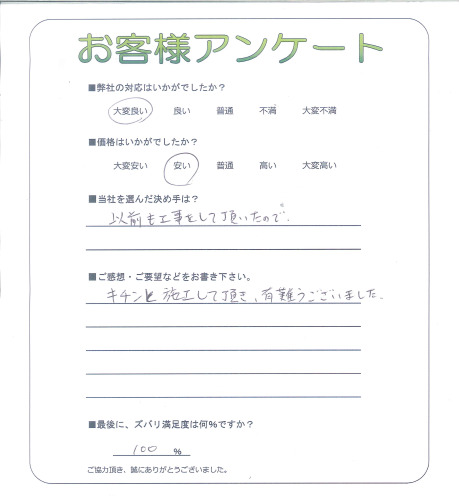 お客様アンケート
■弊社の対応はいかがでしたか？
大変良い 良い 普通 不満 大変不満
■価格はいかがでしたか？
大変安い 安い 普通 高い 大変高い
■当社を選んだ決め手は？
以前も工事をして頂いたので。
■ご感想・ご要望などをお書き下さい。
キチンと施工して頂き、有難うございました。
■最後に、ズバリ満足度は何％ですか？
100 ％
ご協力頂き、誠にありがとうございました。